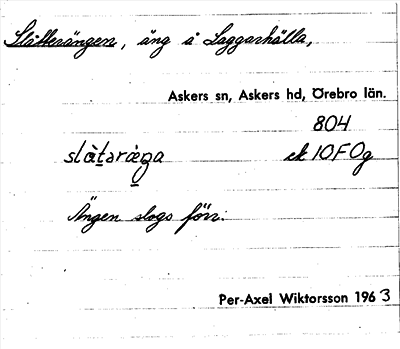 Slåtterängen, äng å Laggarhälla,
Askers sn, Askers hd, Örebro län.
804
slàtəræŋa ek 10F0g
Ängen slogs förr.
Per-Axel Wiktorsson 1963